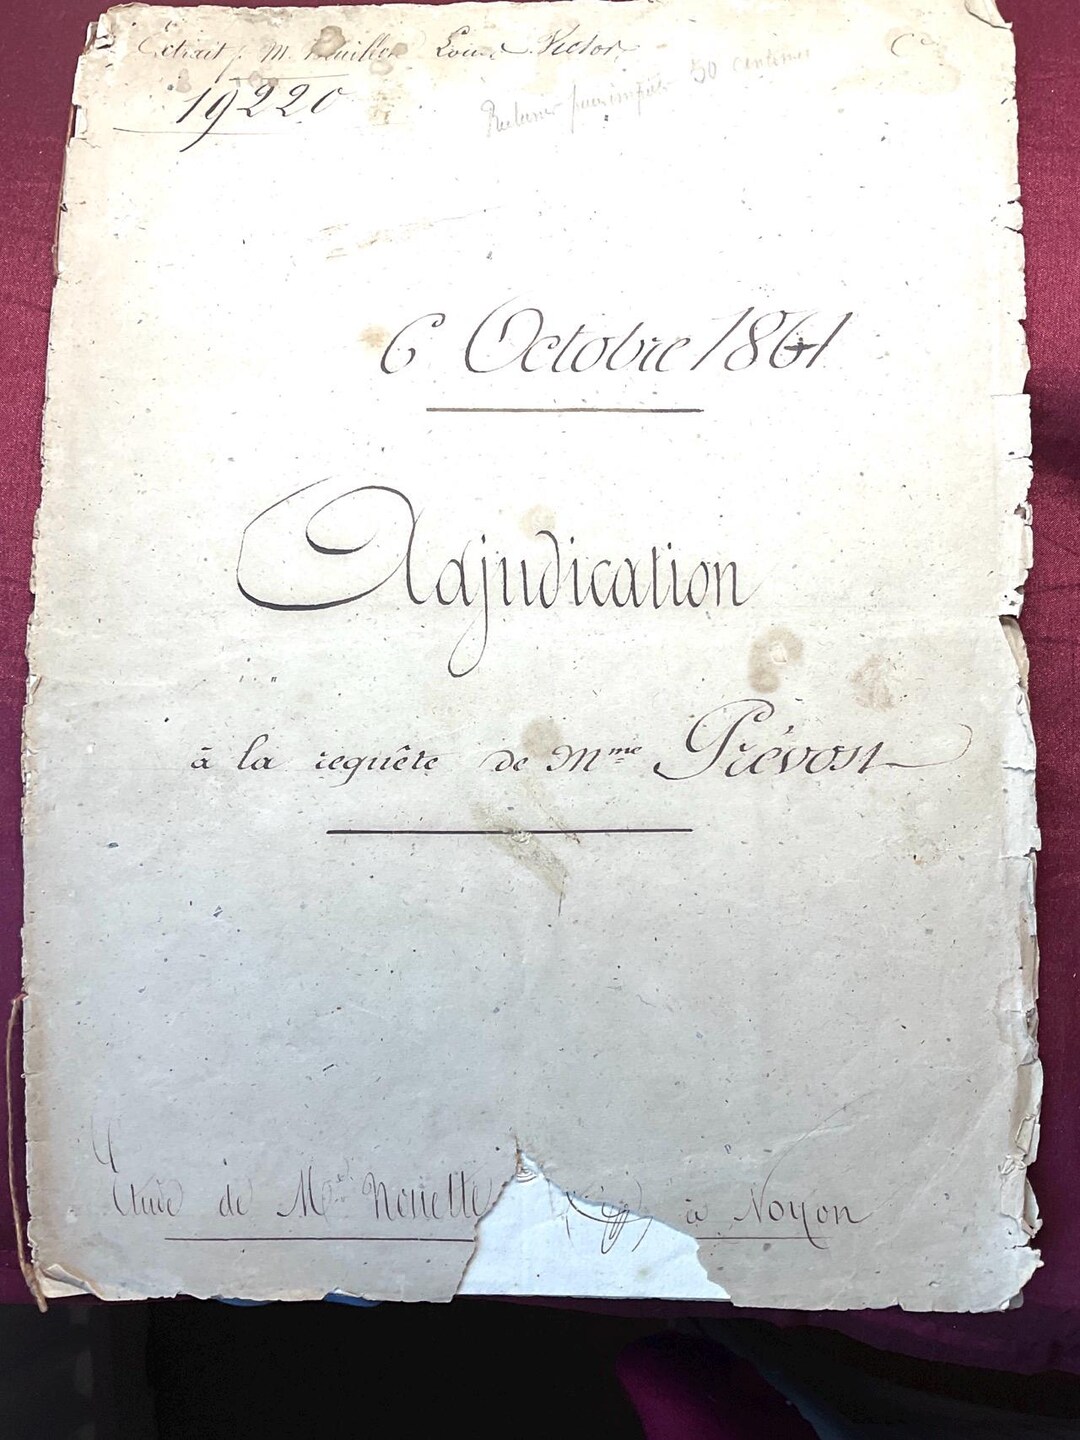 Extrait p. M. Louis Victor
19220
50 centimes
6 Octobre 1861
Adjudication
à la requête de Mme Prévost
Etude de Me à Noyon